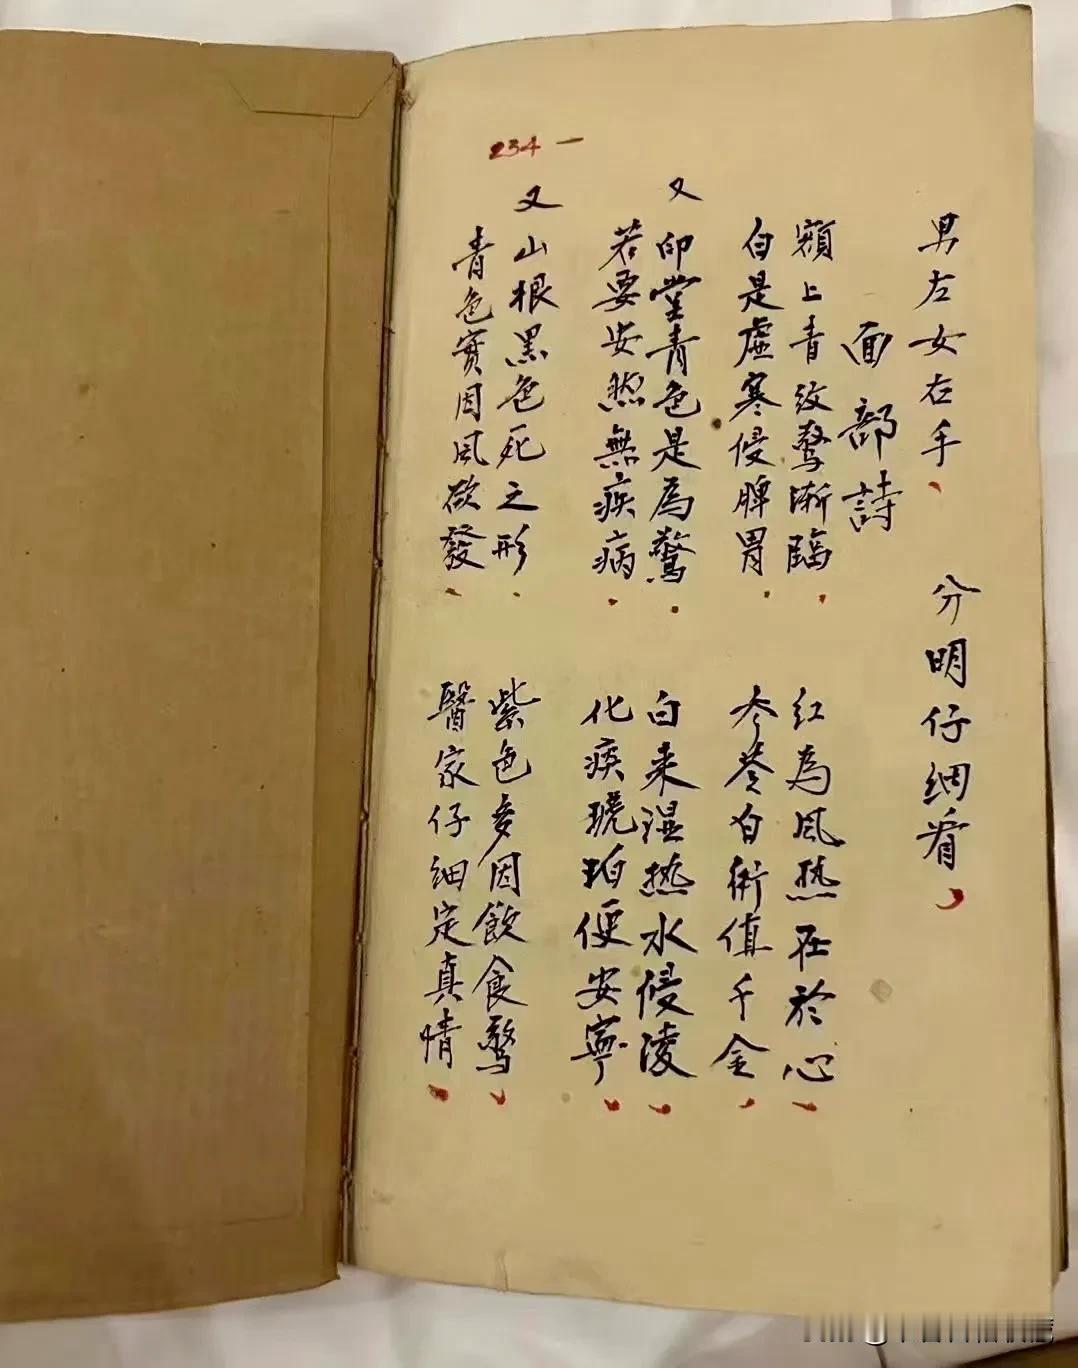 男左女右手、 分明仔细看、
面部詩
額上青紋驚漸臨、 红為風热在於心、
白是虛寒侵脾胃、 参苓白術值千金、
又 印堂青色是為驚、 白来湿热水侵凌、
若要安然無疾病、 化痰琥珀便安寧、
又 山根黑色死之形、 紫色多因飲食驚、
青色實因風欲發、 醫家仔细定真情、
234 一